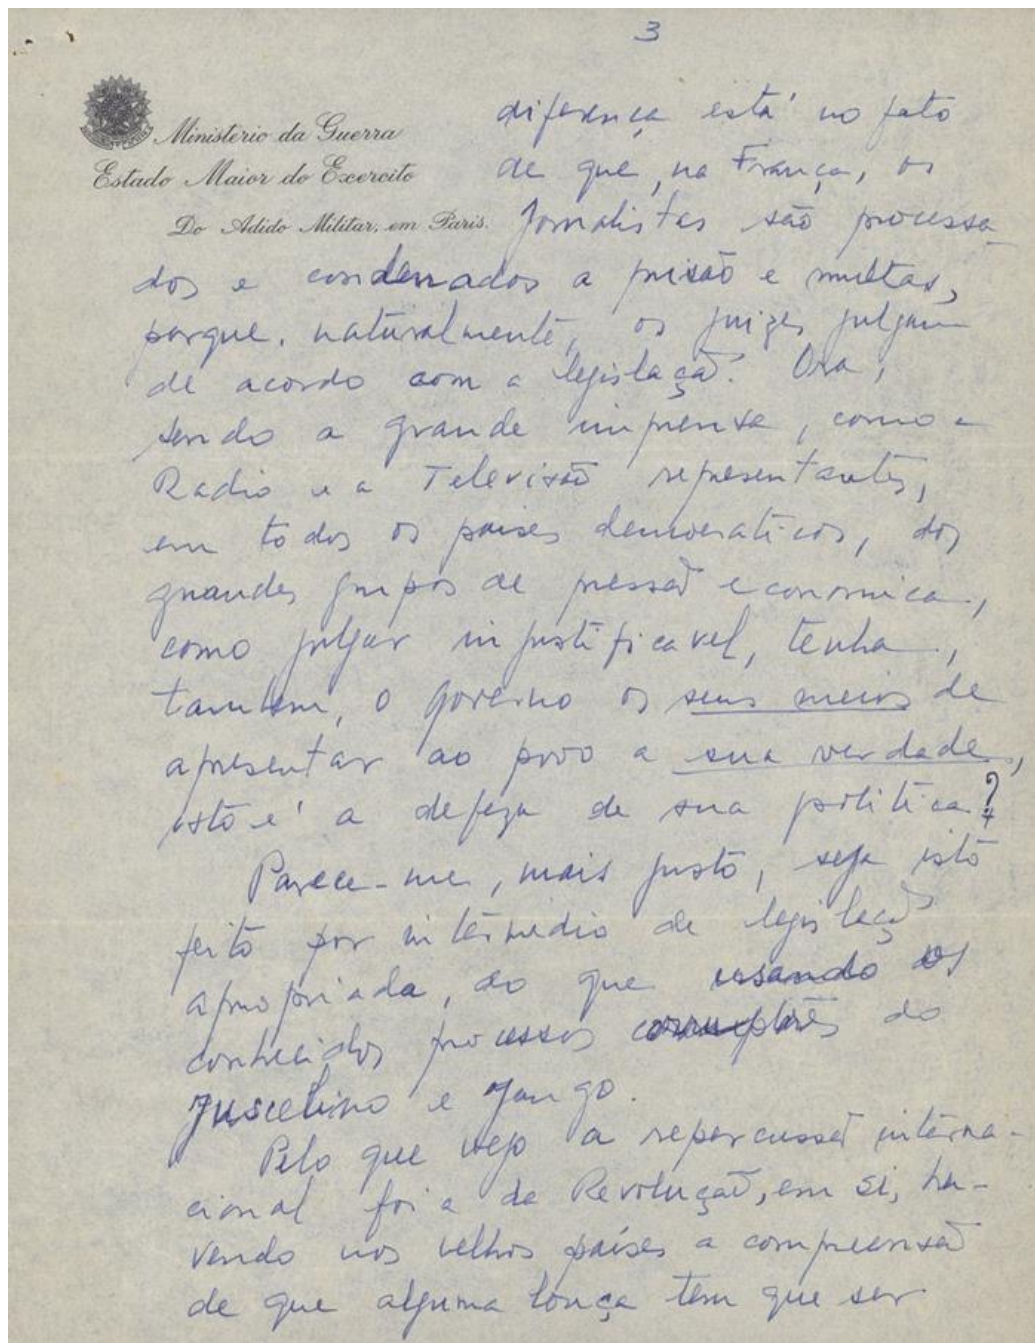 3
Ministerio da Guerra
Estado Maior do Exercito
Do Adido Militar, em Paris.
diferença está no fato
de que, na França, os
Jornalistas são processa
dos e condenados a prisão e multas,
porque, naturalmente, os juizes julgam
de acordo com a legislação. Ora,
sendo a grande imprensa, como a
Radio e a Televisão representantes,
em todos os paises democraticos, dos
grandes grupos de pressão economica,
como julgar injustificavel, tenha,
tambem, o governo os seus meios de
apresentar ao povo a sua verdade,
isto é a defeza de sua politica?
Parece-me, mais justo, seja isto
feito por intermedio de legislação
apropriada, do que usando os
conhecidos processos corruptores do
Juscelino e Jango.
Pelo que vejo a repercussão interna-
cional foi a da Revolução, em si, ha-
vendo nos velhos países a compreensão
de que alguma louça tem que ser